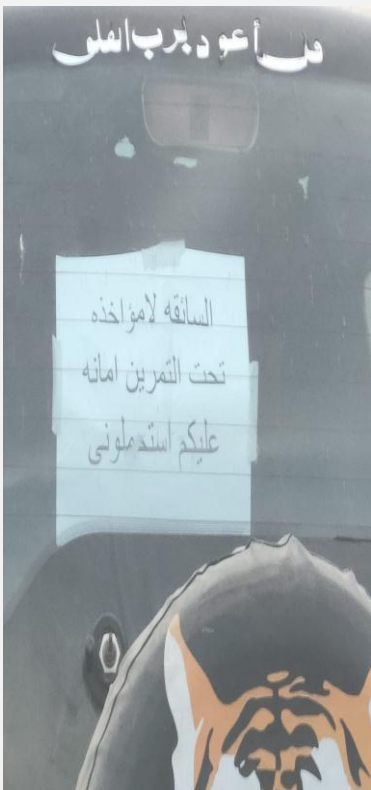 قل أعوذ برب الفلق
السائقه لامؤاخذه
تحت التمرين امانه
عليكم استحملونى